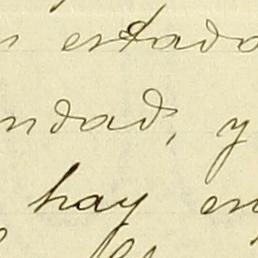 estado
ndad, y
hay en